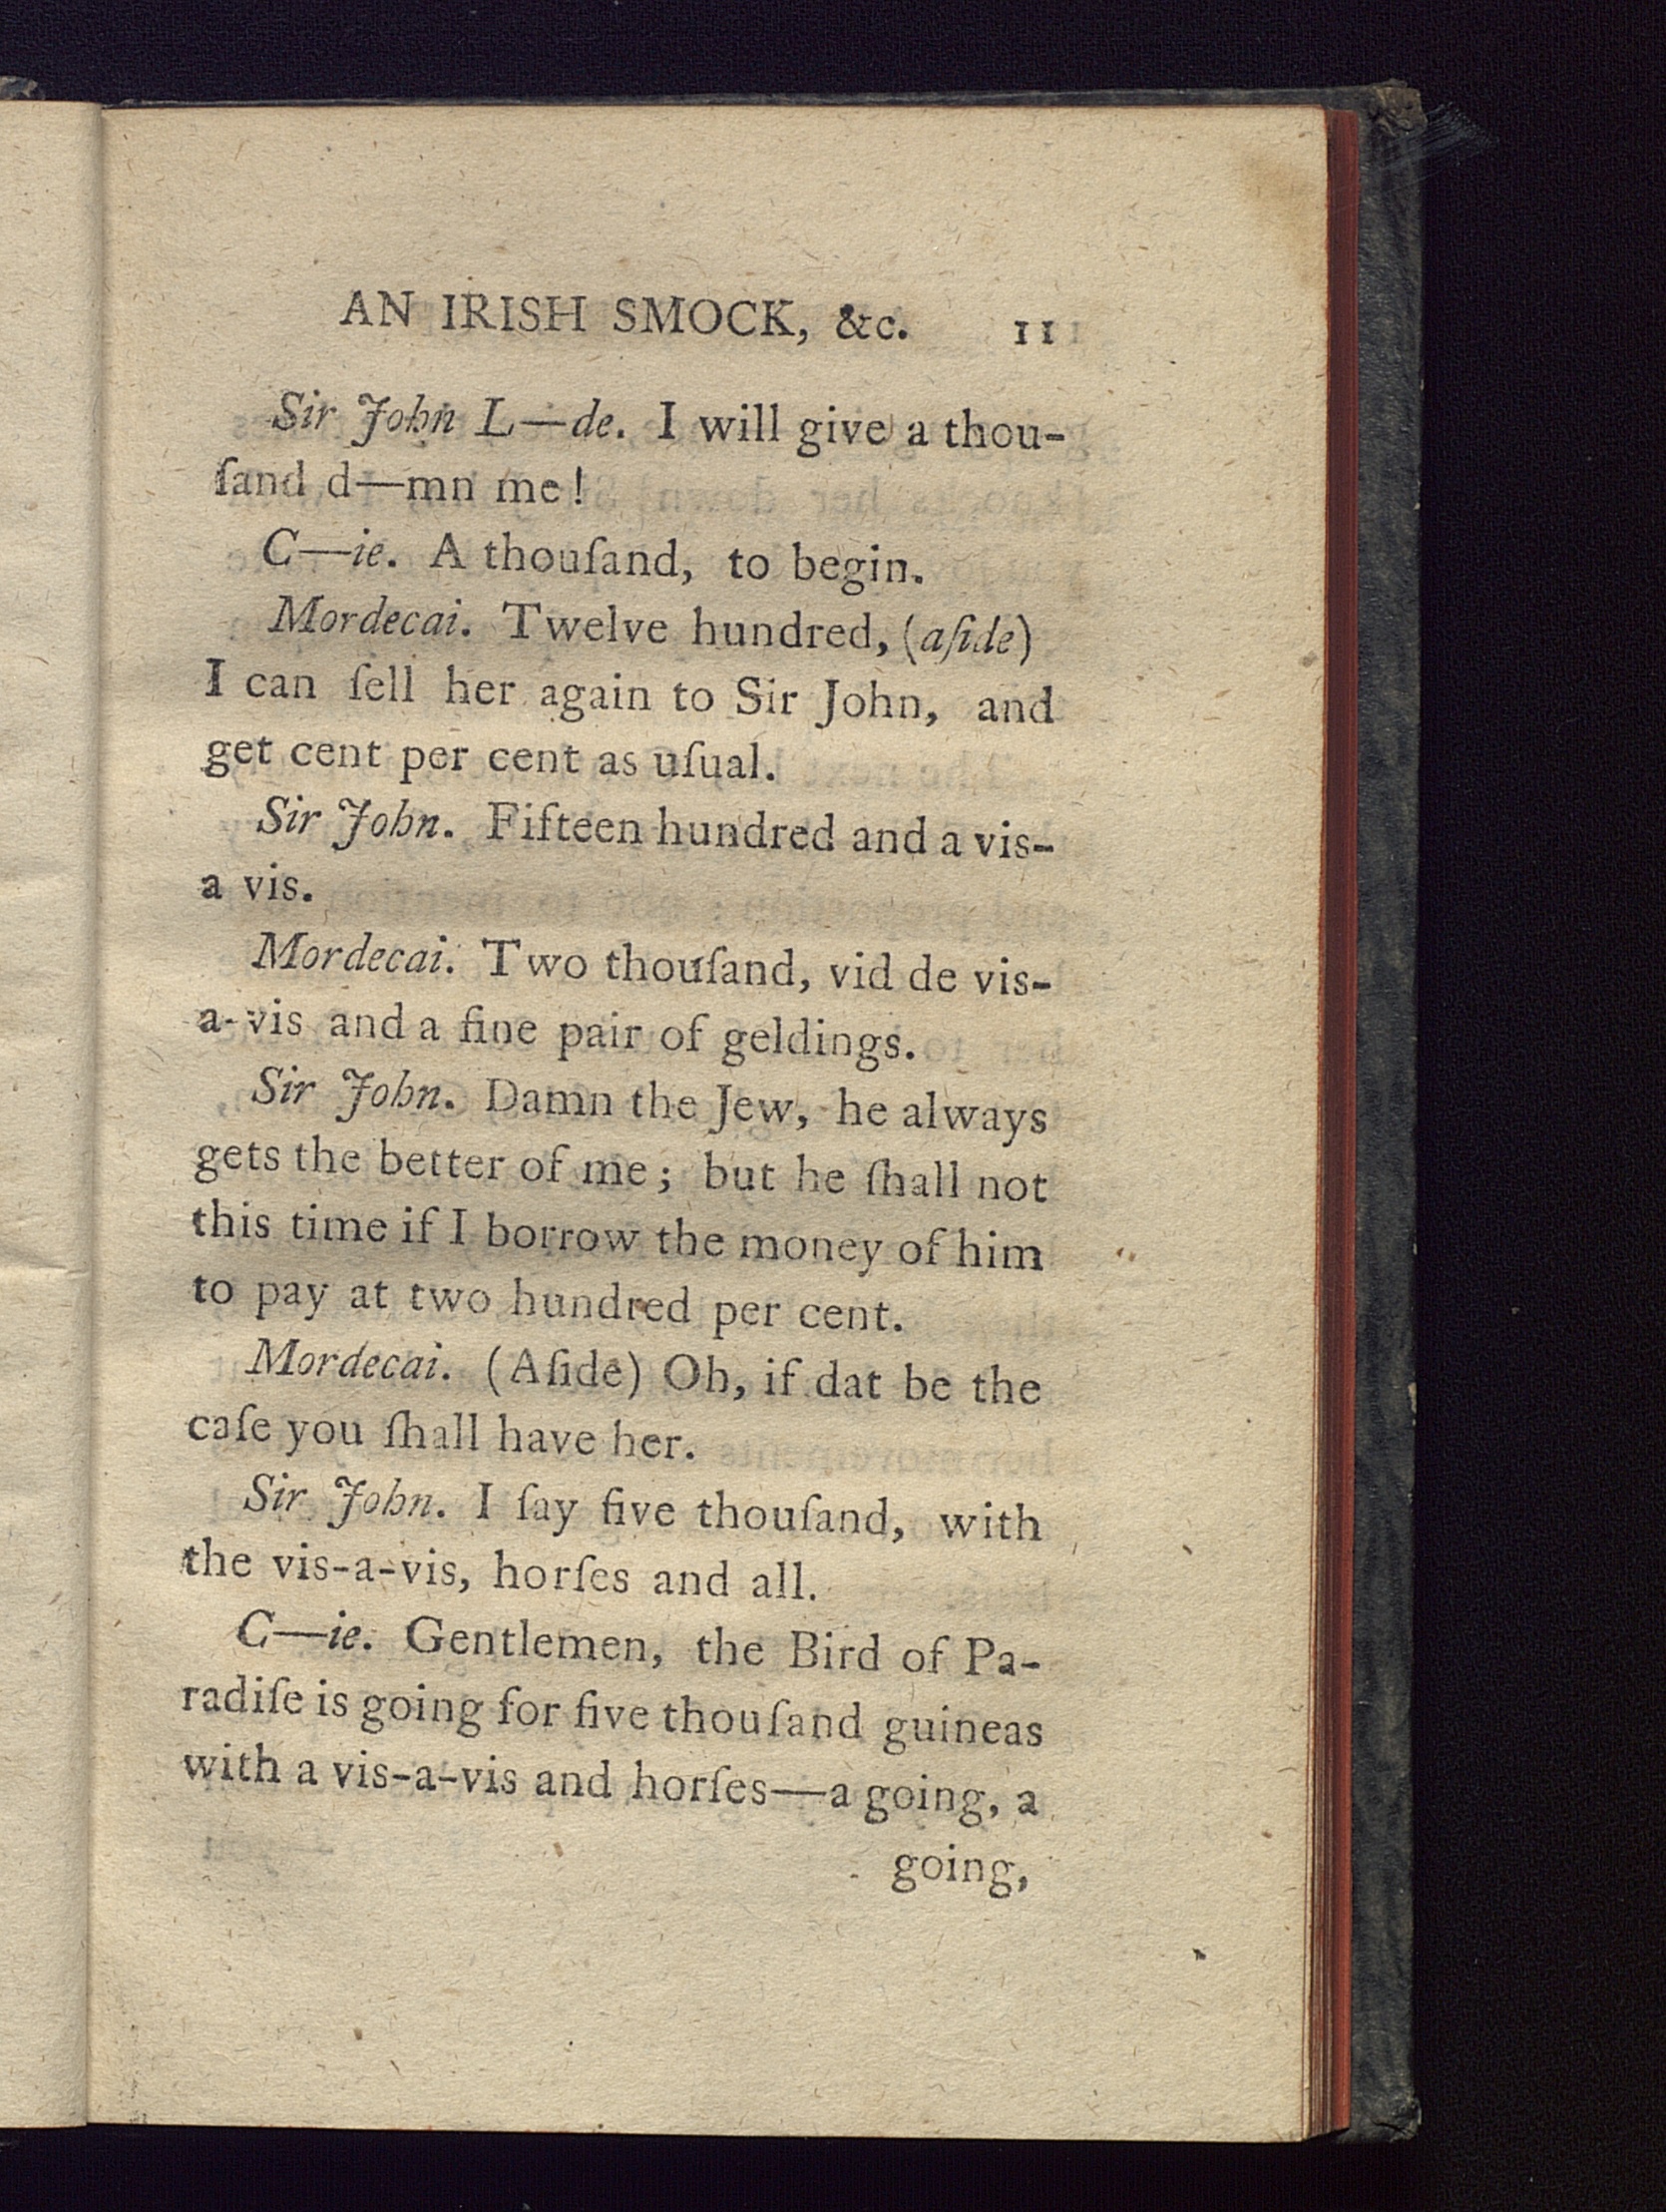 AN IRISH SMOCK, &c. 11
Sir John L—de. I will give a thou-
ſand d—mn me!
C—ie. A thouſand, to begin.
Mordecai. Twelve hundred, (aſide)
I can ſell her again to Sir John, and
get cent per cent as uſual.
Sir John. Fifteen hundred and a vis-
a vis.
Mordecai. Two thouſand, vid de vis-
a-vis and a fine pair of geldings.
Sir John. Damn the Jew, he always
gets the better of me; but he ſhall not
this time if I borrow the money of him
to pay at two hundred per cent.
Mordecai. (Aſide) Oh, if dat be the
caſe you ſhall have her.
Sir John. I ſay five thouſand, with
the vis-a-vis, horſes and all.
C—ie. Gentlemen, the Bird of Pa-
radiſe is going for five thouſand guineas
with a vis-a-vis and horſes—a going, a
going,